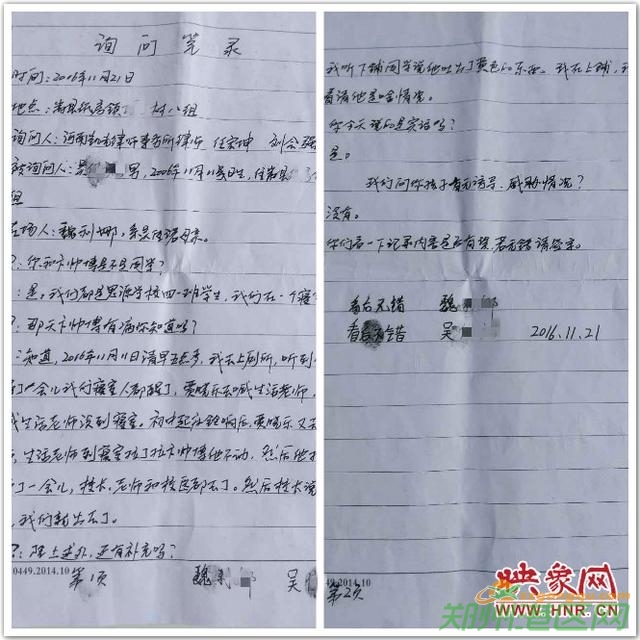 询问笔录
时间：2016年11月21日
地点：嵩县纸房镇 村八组
询问人：河南 律师事务所律师 任宗坤 刘会强
被询问人：吴 男，2006年11月 日生，住嵩县
组
在场人：魏利娜，系吴 母亲。
：你和卞帅博是不是同学？
：是。我们都是思源学校四一班学生，我们在一个寝
？：那天卞帅博有病你知道吗？
：知道，2016年11月11日清早五点多，我去上厕所，听到
了一会儿我们寝室人都醒了，贾晓乐去喊生活老师，
生活老师没到寝室。初中起床铃响后，贾晓乐又去
，生活老师到寝室拉了拉卞帅博他不动，然后他
了一会儿，校长、老师和校医都去了。然后校长说
，我们就出去了。
？：除上述外，还有补充吗？
0449.2014.10 第1页 魏 吴
我听下铺同学说他吐出了黄色的东西。我在上铺，
看清他是啥情况。
你今天说的是实话吗？
是。
我们问你孩子有无诱导、威胁情况？
没有。
你们看一下记录内容是否有误，若无错请签字。
看后无错 魏
看后无错 吴 2016.11.21
49.2014.10
第2页
映象网
WWW.HNR.CN